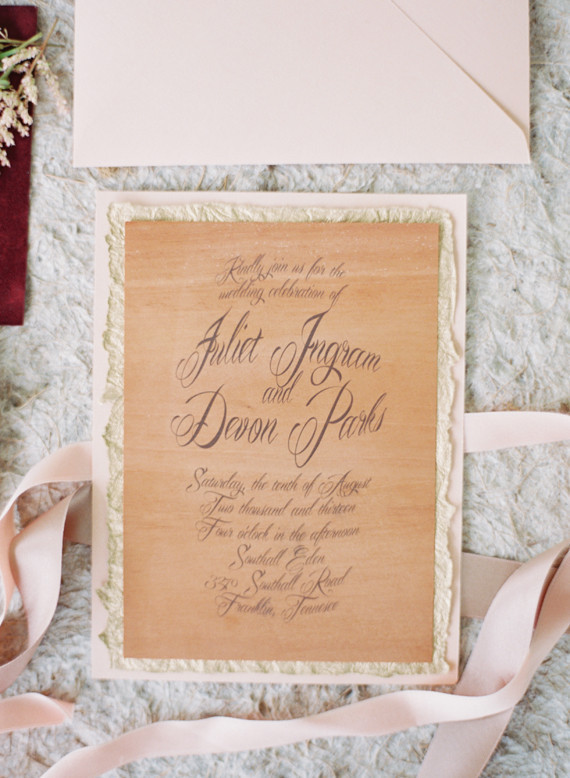 Kindly join us for the
wedding celebration of
Juliet Ingram
and
Devon Parks
Saturday, the tenth of August
Two thousand and thirteen
Four o'clock in the afternoon
Southall Eden
Southall Road
Franklin, Tennesee